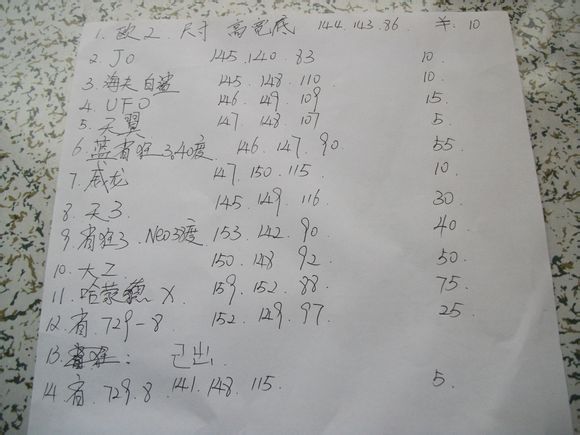 1. 欧Z. 尺寸 高宽底 144.143.86. 羊. 10
2. JO 145.140.83 10.
3. 海夫白鲨 145.148.110 10.
4. UFO 146.149.109 15.
5. 天翼 147.148.107 5.
6. 蓝省狂3.40度. 146.147.90. 55
7. 威龙 147.150.115. 10.
8. 天3. 145.149.116 30
9. 省狂3. NEO38度 153.142.90 40
10. 大Z. 150.148.92 50
11. 哈蒙德 X. 159.152.88 75
12. 省.729-8. 152.149.97. 25
13. : 已出.
14. 省.729.8. 141.148.115. 5.